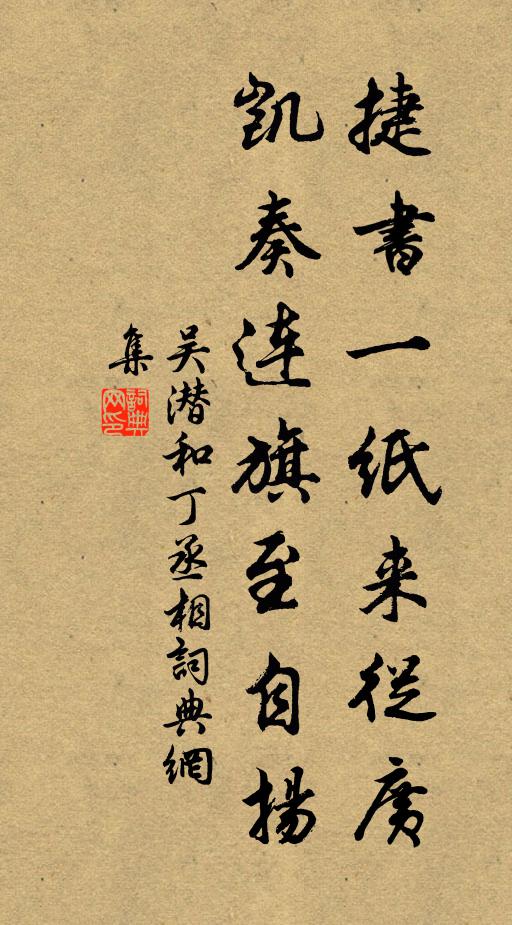 捷書一紙来從廣
凱奏連旗至自揚
吴潜和丁丞相詞典網
集
詞典网印